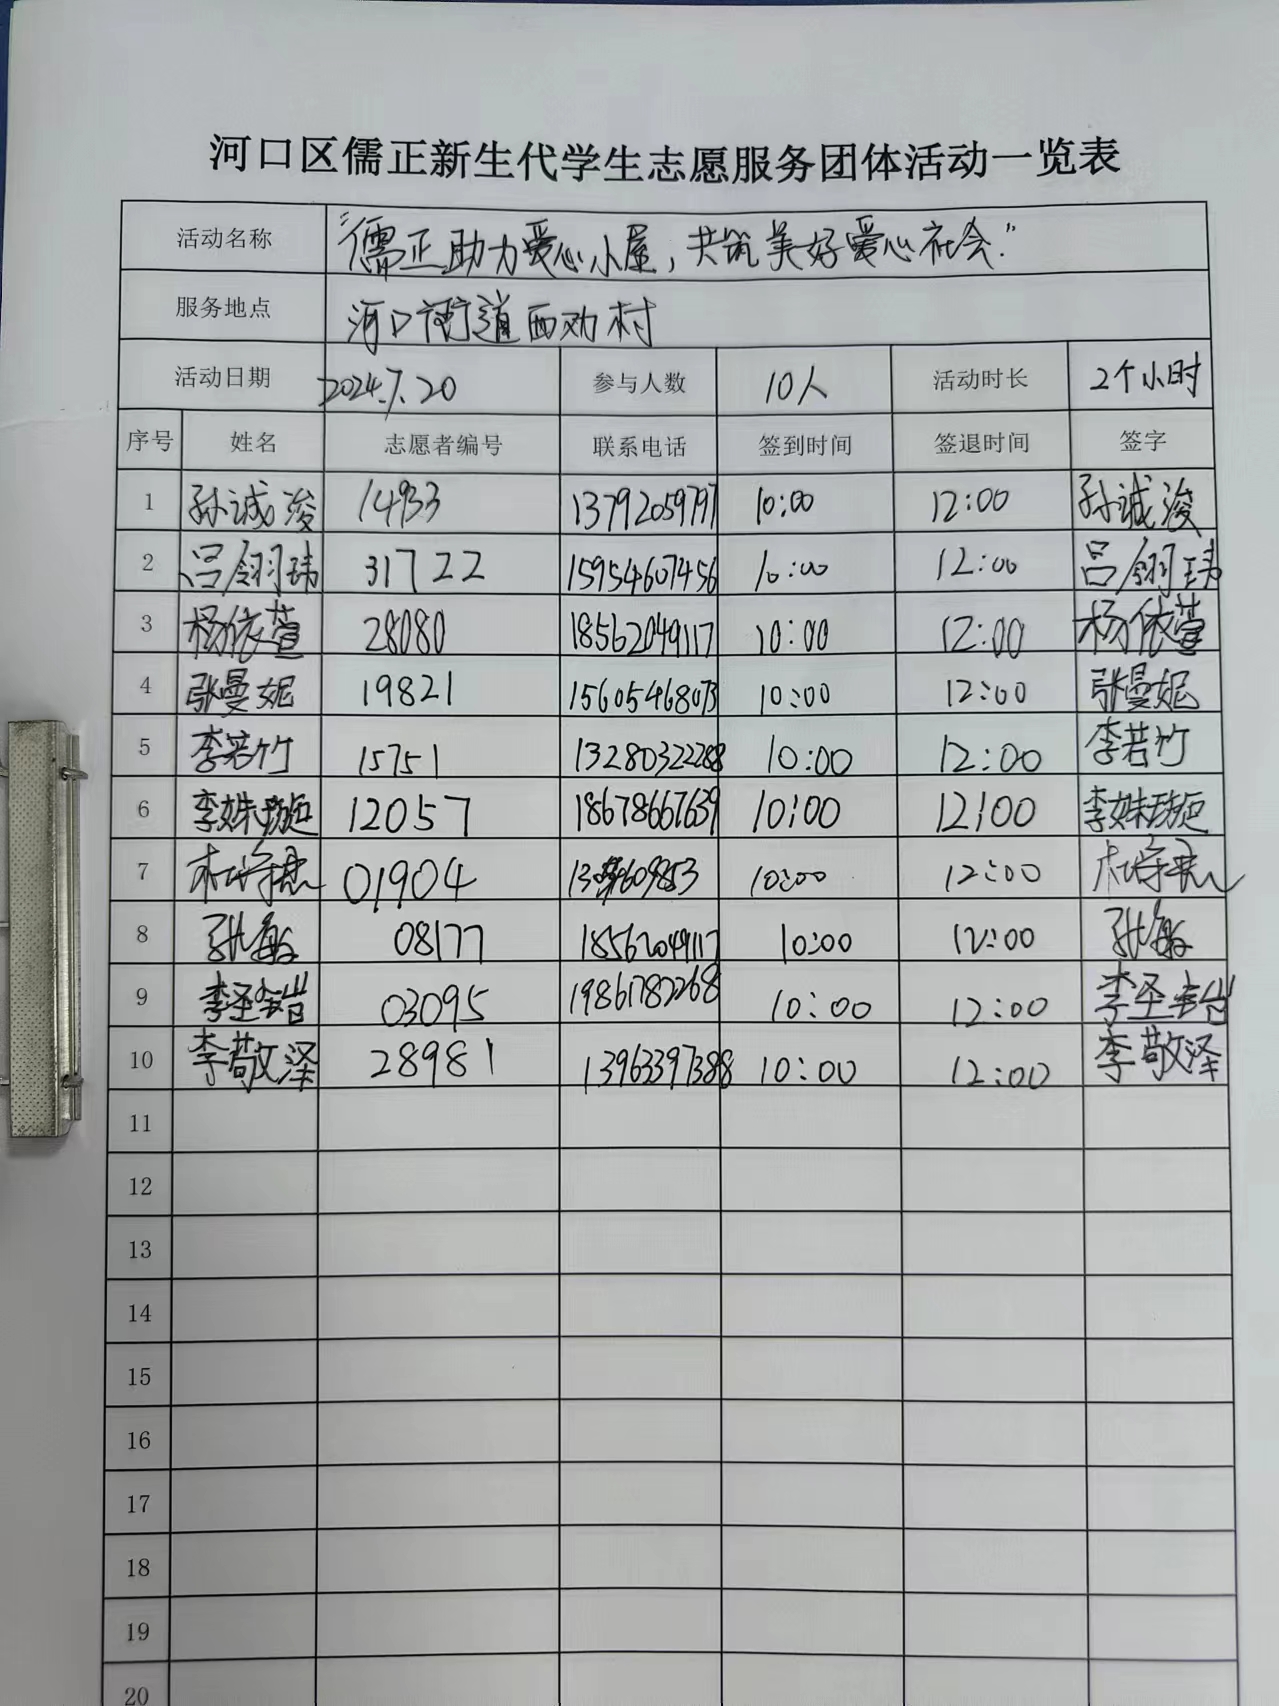 河口区儒正新生代学生志愿服务团体活动一览表
活动名称 "儒正助力爱心小屋，共筑美好爱心社会."
服务地点 河口街道西劝村
活动日期 2024.7.20 参与人数 10人 活动时长 2个小时
序号 姓名 志愿者编号 联系电话 签到时间 签退时间 签字
1 孙诚浚 14933 13792059797 10:00 12:00 孙诚浚
2 吕翎玮 31722 15954607456 10:00 12:00 吕翎玮
3 杨依萱 28080 18562049117 10:00 12:00 杨依萱
4 张曼妮 19821 15605468073 10:00 12:00 张曼妮
5 李若竹 15751 13280322288 10:00 12:00 李若竹
6 李姝璇 12057 18678667639 10:00 12:00 李姝璇
7 01904 10:00 12:00
8 张敏 08177 18562049117 10:00 12:00 张敏
9 03095 19861782268 10:00 12:00
10 李敬泽 28981 13963397388 10:00 12:00 李敬泽
11
12
13
14
15
16
17
18
19
20